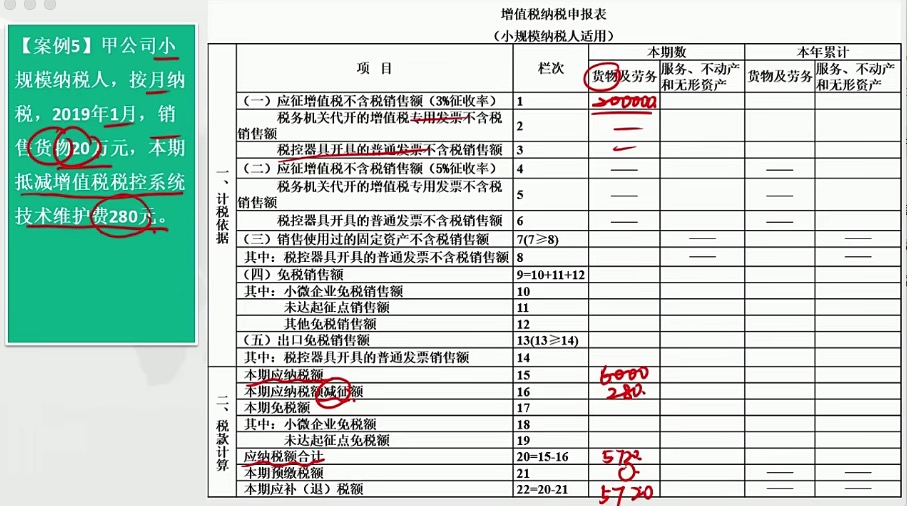 【案例5】甲公司小
规模纳税人，按月纳
税，2019年1月，销
售货物20万元，本期
抵减增值税税控系统
技术维护费280元。
增值税纳税申报表
（小规模纳税人适用）
项 目 栏次 本期数 本年累计
货物及劳务 服务、不动产和无形资产 货物及劳务 服务、不动产和无形资产
一、计税依据
（一）应征增值税不含税销售额（3%征收率） 1 200000
税务机关代开的增值税专用发票不含税
销售额 2 —
税控器具开具的普通发票不含税销售额 3
（二）应征增值税不含税销售额（5%征收率） 4 —— ——
税务机关代开的增值税专用发票不含税
销售额 5 —— ——
税控器具开具的普通发票不含税销售额 6 —— ——
（三）销售使用过的固定资产不含税销售额 7(7≥8) —— ——
其中：税控器具开具的普通发票不含税销售额 8 —— ——
（四）免税销售额 9=10+11+12
其中：小微企业免税销售额 10
未达起征点销售额 11
其他免税销售额 12
（五）出口免税销售额 13(13≥14)
其中：税控器具开具的普通发票销售额 14
二、税款计算
本期应纳税额 15 6000
本期应纳税额减征额 16 280.
本期免税额 17
其中：小微企业免税额 18
未达起征点免税额 19
应纳税额合计 20=15-16
本期预缴税额 21 0 —— ——
本期应补（退）税额 22=20-21 5720 —— ——